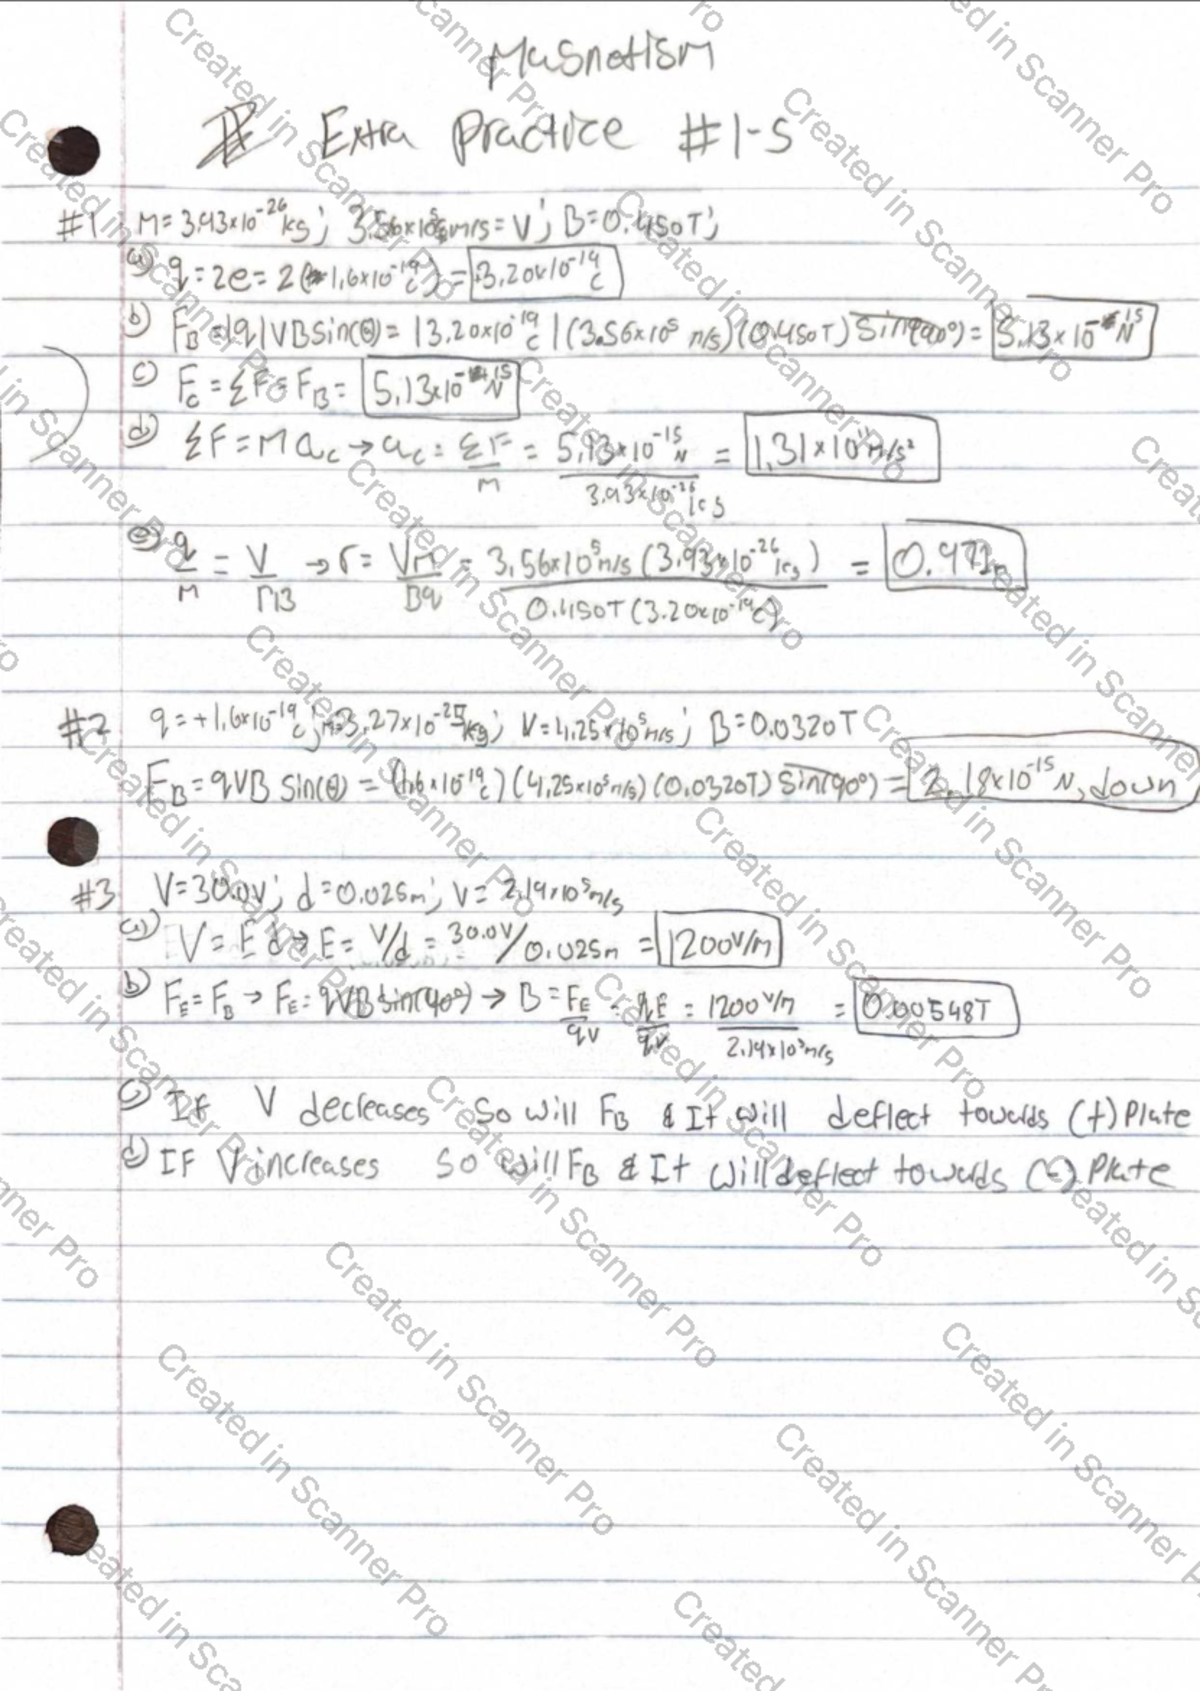 Magnetism
Extra Practice #1-5
#1 M=3.93x10⁻²⁶ kg; 3.56x10⁵ m/s = V; B=0.450T;
a) q = 2e = 2(1.6x10⁻¹⁹ C) = +3.20x10⁻¹⁹ C
b) F_B = |q|VBsin(θ) = |3.20x10⁻¹⁹ C|(3.56x10⁵ m/s)(0.450T) Sin(90°) = 5.13x10⁻¹⁵ N
c) F_c = ΣF = F_B = 5.13x10⁻¹⁵ N
d) ΣF = Ma_c → a_c = ΣF/m = 5.13x10⁻¹⁵ N / 3.93x10⁻²⁶ kg = 1.31x10¹¹ m/s²
e) q/m = V/rB → r = Vm/Bq = 3.56x10⁵ m/s (3.93x10⁻²⁶ kg) / 0.450T (3.20x10⁻¹⁹ C) = 0.972m
#2 q=+1.6x10⁻¹⁹ C; m=3.27x10⁻²⁵ kg; V=4.25x10⁵ m/s; B=0.0320T
F_B = qVB Sin(θ) = (1.6x10⁻¹⁹ C)(4.25x10⁵ m/s)(0.0320T) Sin(90°) = 2.18x10⁻¹⁵ N, down
#3 V=30.0V; d=0.025m; V= 2.19x10⁵ m/s
a) V = Ed → E = V/d = 30.0V/0.025m = 1200V/m
b) F_E = F_B → F_E = qVB sin(90°) → B = F_E/qV = qE/qV = 1200 V/m / 2.19x10⁵ m/s = 0.00548T
c) If V decreases So will F_B & It will deflect towards (+) Plate
d) IF V increases So will F_B & It will deflect towards (-) Plate
Created in Scanner Pro